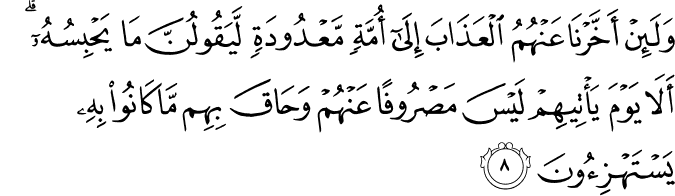 وَلَئِنْ أَخَّرْنَا عَنْهُمُ ٱلْعَذَابَ إِلَىٰٓ أُمَّةٍ مَّعْدُودَةٍ لَّيَقُولُنَّ مَا يَحْبِسُهُۥٓ ۗ
أَلَا يَوْمَ يَأْتِيهِمْ لَيْسَ مَصْرُوفًا عَنْهُمْ وَحَاقَ بِهِم مَّا كَانُوا۟ بِهِۦ
يَسْتَهْزِءُونَ ٨